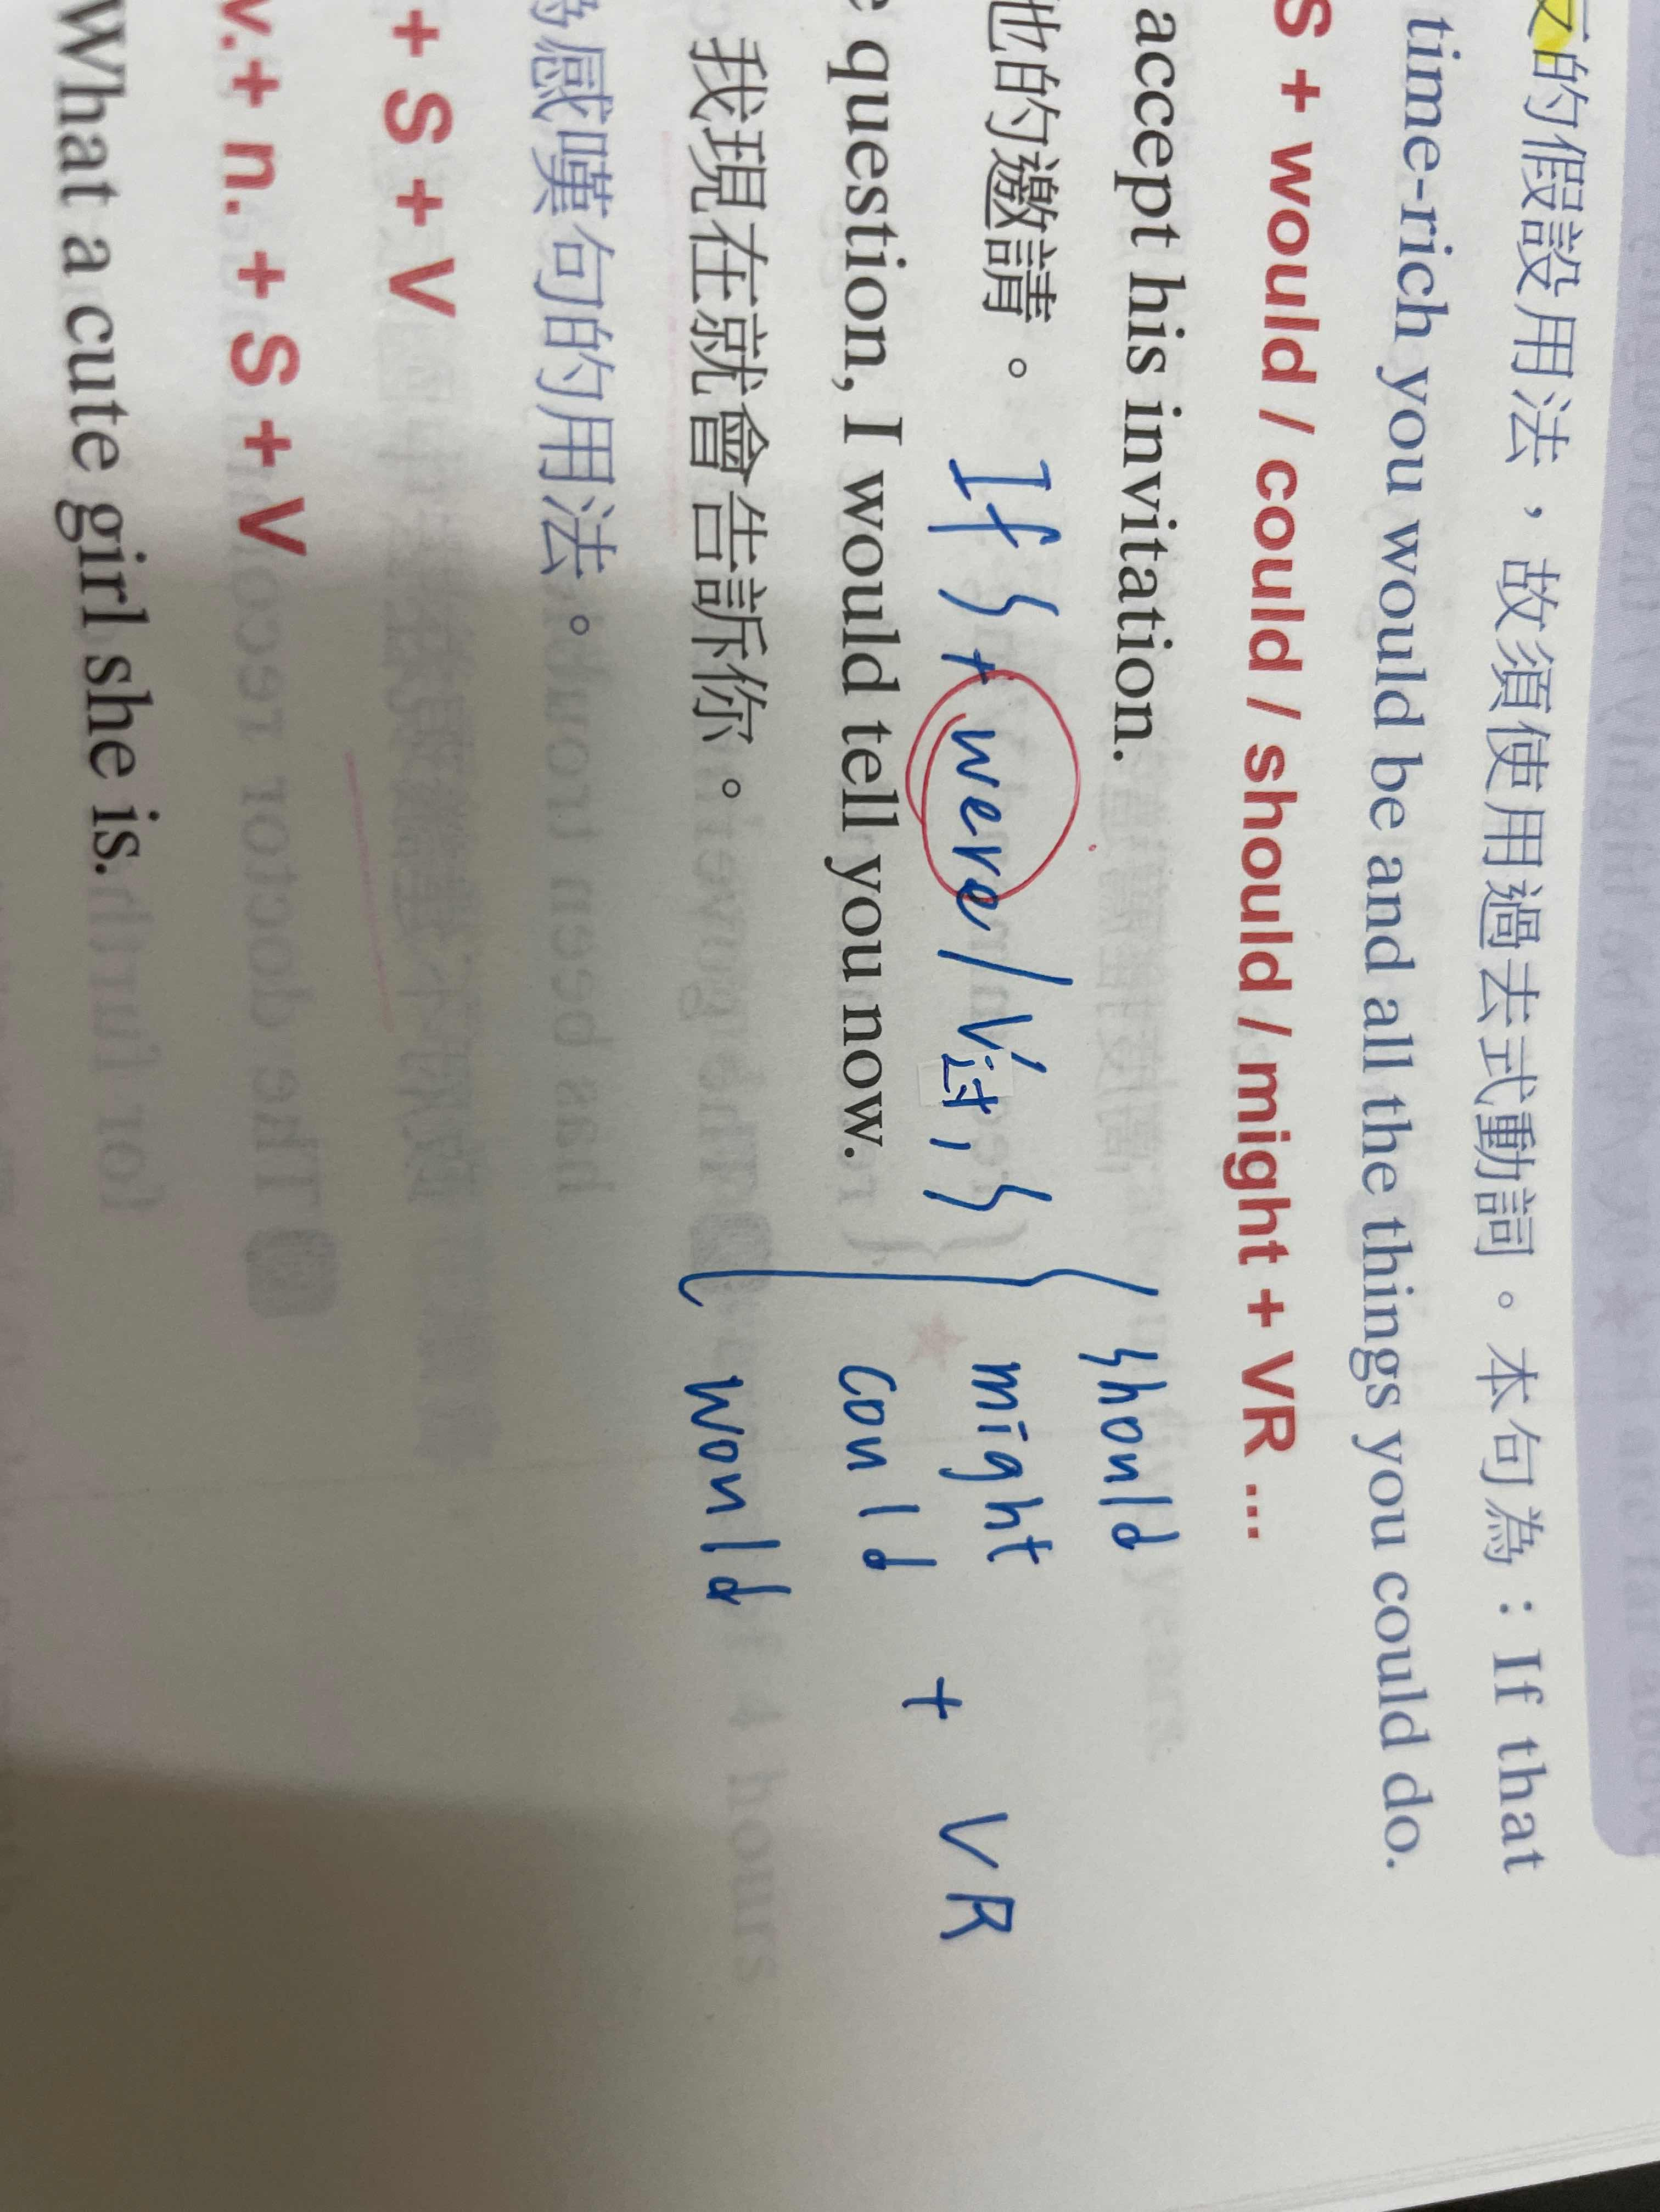 的假設用法，故須使用過去式動詞。本句為：If that
time-rich you would be and all the things you could do.
S + would / could / should / might + VR ...
accept his invitation.
他的邀請。
If S + were / V过, S { should might could would + VR
question, I would tell you now.
我現在就會告訴你。
為感嘆句的用法。
+ S + V
v. + n. + S + V
What a cute girl she is.